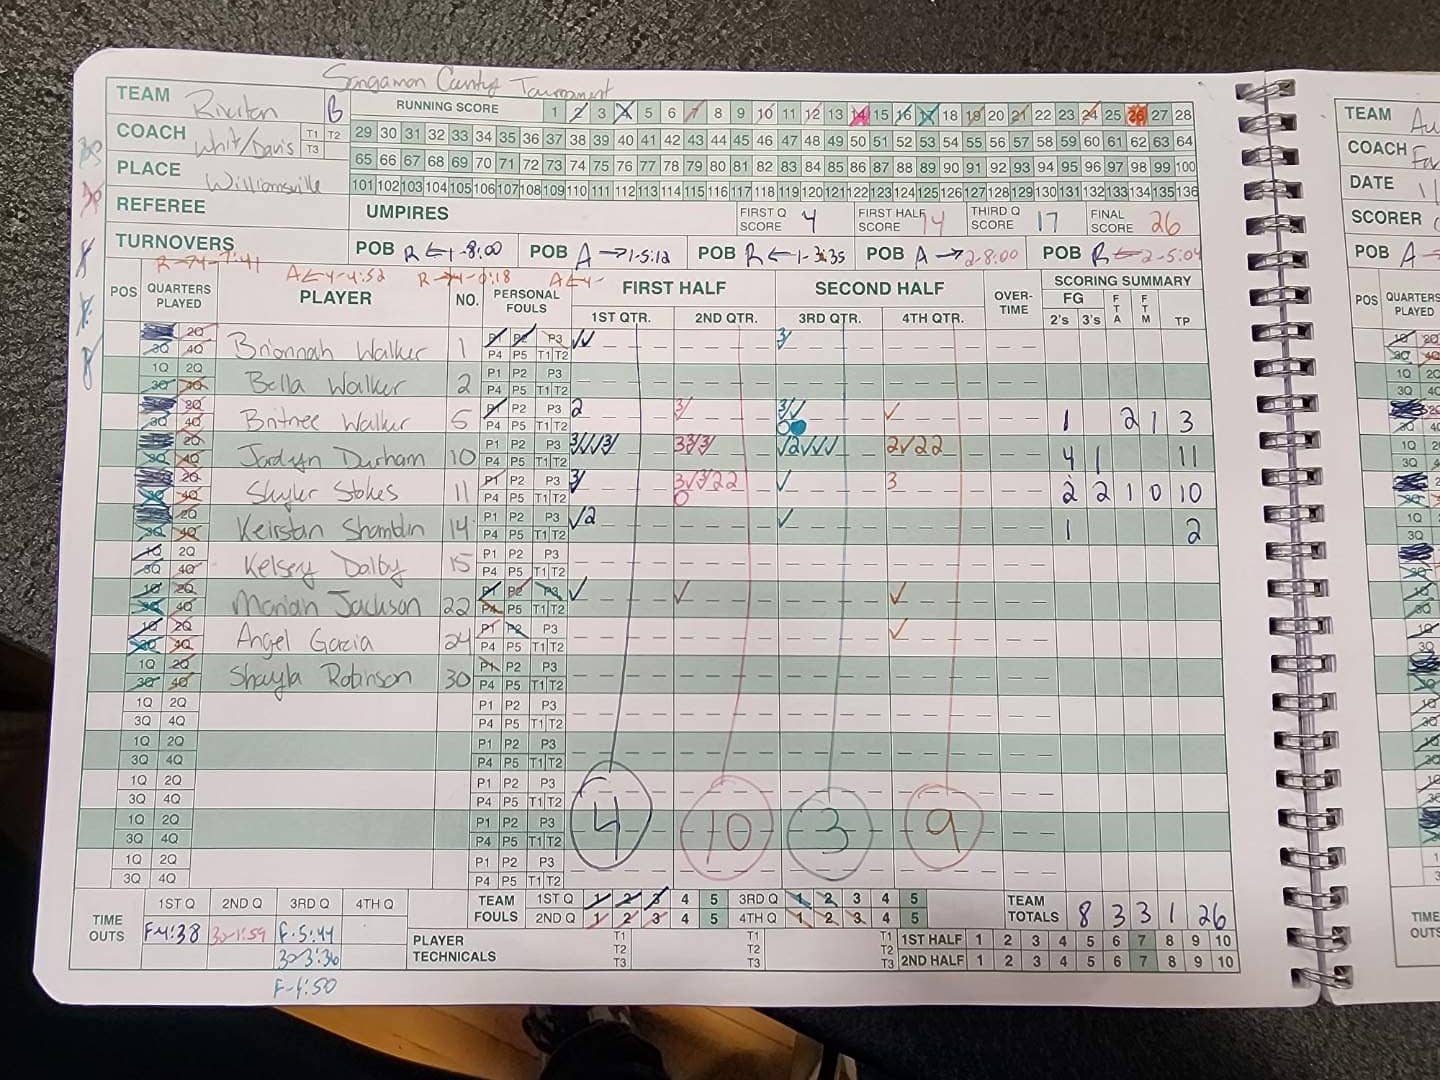 Sangamon County Tournament
TEAM Riverton B
RUNNING SCORE 1 2 3 4 5 6 7 8 9 10 11 12 13 14 15 16 17 18 19 20 21 22 23 24 25 26 27 28
COACH Whit/Davis T1 T2 T3
29 30 31 32 33 34 35 36 37 38 39 40 41 42 43 44 45 46 47 48 49 50 51 52 53 54 55 56 57 58 59 60 61 62 63 64
65 66 67 68 69 70 71 72 73 74 75 76 77 78 79 80 81 82 83 84 85 86 87 88 89 90 91 92 93 94 95 96 97 98 99 100
PLACE Williamsville
101 102 103 104 105 106 107 108 109 110 111 112 113 114 115 116 117 118 119 120 121 122 123 124 125 126 127 128 129 130 131 132 133 134 135 136
REFEREE UMPIRES FIRST Q SCORE 4 FIRST HALF SCORE 14 THIRD Q SCORE 17 FINAL SCORE 26
TURNOVERS POB R ← 1-8:00 POB A → 1-5:12 POB R ← 1-3:35 POB A → 2-8:00 POB R ← 2-5:04
R → 4-7:41 A ← 4-4:52 R → 4-0:18 A ← 4-
POS QUARTERS PLAYED PLAYER NO. PERSONAL FOULS FIRST HALF SECOND HALF OVER-TIME SCORING SUMMARY
1ST QTR. 2ND QTR. 3RD QTR. 4TH QTR. FG 2's 3's FTA FTM TP
2Q 3Q 4Q Brionnah Walker 1 P1 P2 P3 P4 P5 T1 T2 3
1Q 2Q 3Q 4Q Bella Walker 2 P1 P2 P3 P4 P5 T1 T2
2Q 3Q 4Q Britnee Walker 5 P1 P2 P3 P4 P5 T1 T2 2 3 3 0 1 2 1 3
2Q 3Q 4Q Jordyn Durham 10 P1 P2 P3 P4 P5 T1 T2 3 3 3 3 3 2 2 2 2 4 1 11
2Q 3Q 4Q Skyler Stokes 11 P1 P2 P3 P4 P5 T1 T2 3 3 3 2 2 0 3 2 2 1 0 10
2Q 3Q 4Q Keirstan Shamblin 14 P1 P2 P3 P4 P5 T1 T2 2 1 2
1Q 2Q 3Q 4Q Kelsey Dalby 15 P1 P2 P3 P4 P5 T1 T2
1Q 2Q 3Q 4Q Mariah Jackson 22 P1 P2 P3 P4 P5 T1 T2
1Q 2Q 3Q 4Q Angel Garcia 24 P1 P2 P3 P4 P5 T1 T2
1Q 2Q 3Q 4Q Shayla Robinson 30 P1 P2 P3 P4 P5 T1 T2
1Q 2Q P1 P2 P3
3Q 4Q P4 P5 T1 T2
1Q 2Q P1 P2 P3
3Q 4Q P4 P5 T1 T2
1Q 2Q P1 P2 P3
3Q 4Q P4 P5 T1 T2
1Q 2Q P1 P2 P3
3Q 4Q P4 P5 T1 T2
4 10 3 9
1Q 2Q P1 P2 P3
3Q 4Q P4 P5 T1 T2
TIME OUTS 1ST Q 2ND Q 3RD Q 4TH Q
F-4:38 30-1:59 F-5:44
30-3:36
F-4:50
TEAM FOULS 1ST Q 1 2 3 4 5 3RD Q 1 2 3 4 5
2ND Q 1 2 3 4 5 4TH Q 1 2 3 4 5
TEAM TOTALS 8 3 3 1 26
PLAYER TECHNICALS T1 T2 T3 T1 T2 T3 T1 T2 T3
1ST HALF 1 2 3 4 5 6 7 8 9 10
2ND HALF 1 2 3 4 5 6 7 8 9 10
TEAM Au
COACH Fa
DATE 1
SCORER
POB A
POS QUARTERS PLAYED
TIME OUTS